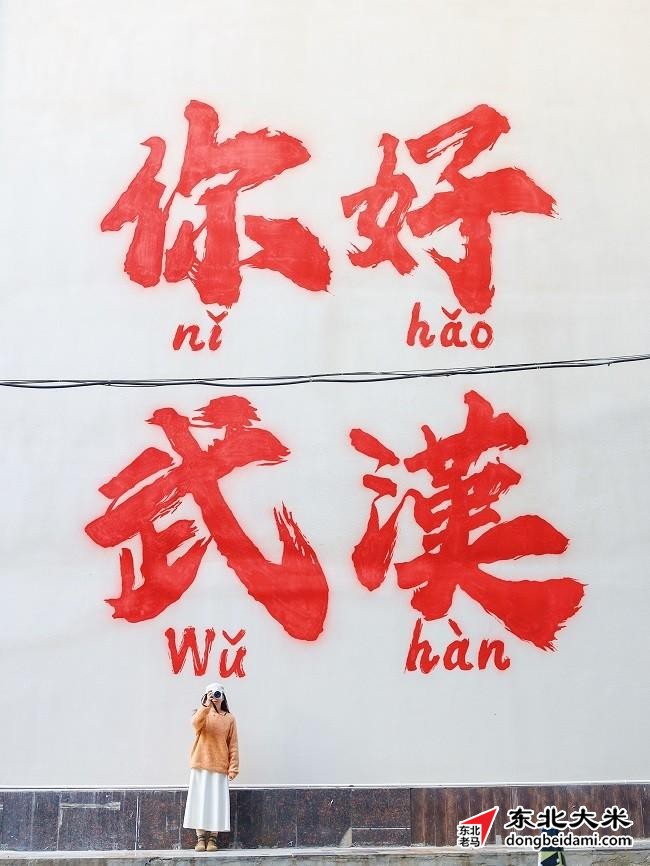 你好
nǐ hǎo
武漢
Wǔ hàn
东北老马
东北大米
dongbeidami.com